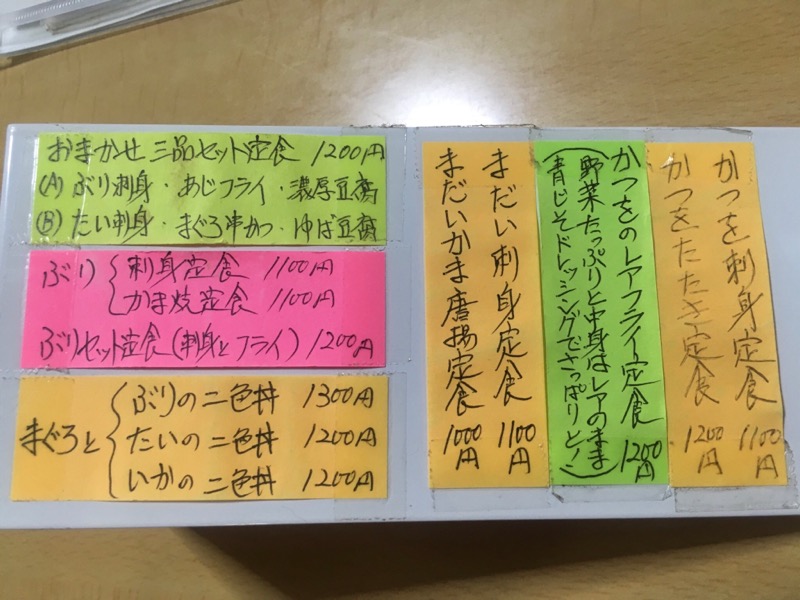 おまかせ三品セット定食 1200円
(A) ぶり刺身・あじフライ・濃厚豆腐
(B) たい刺身・まぐろ串かつ・ゆば豆腐
ぶり 刺身定食 1100円
かま焼定食 1100円
ぶりセット定食(刺身とフライ) 1200円
まぐろと ぶりの二色丼 1300円
たいの二色丼 1200円
いかの二色丼 1200円
かつを刺身定食 1100円
かつをたたき定食 1200円
かつをのレアフライ定食 1200円
(野菜たっぷりと中身はレアのまま
青じそドレッシングでさっぱりと!)
まだい刺身定食 1100円
まだいかま唐揚定食 1000円